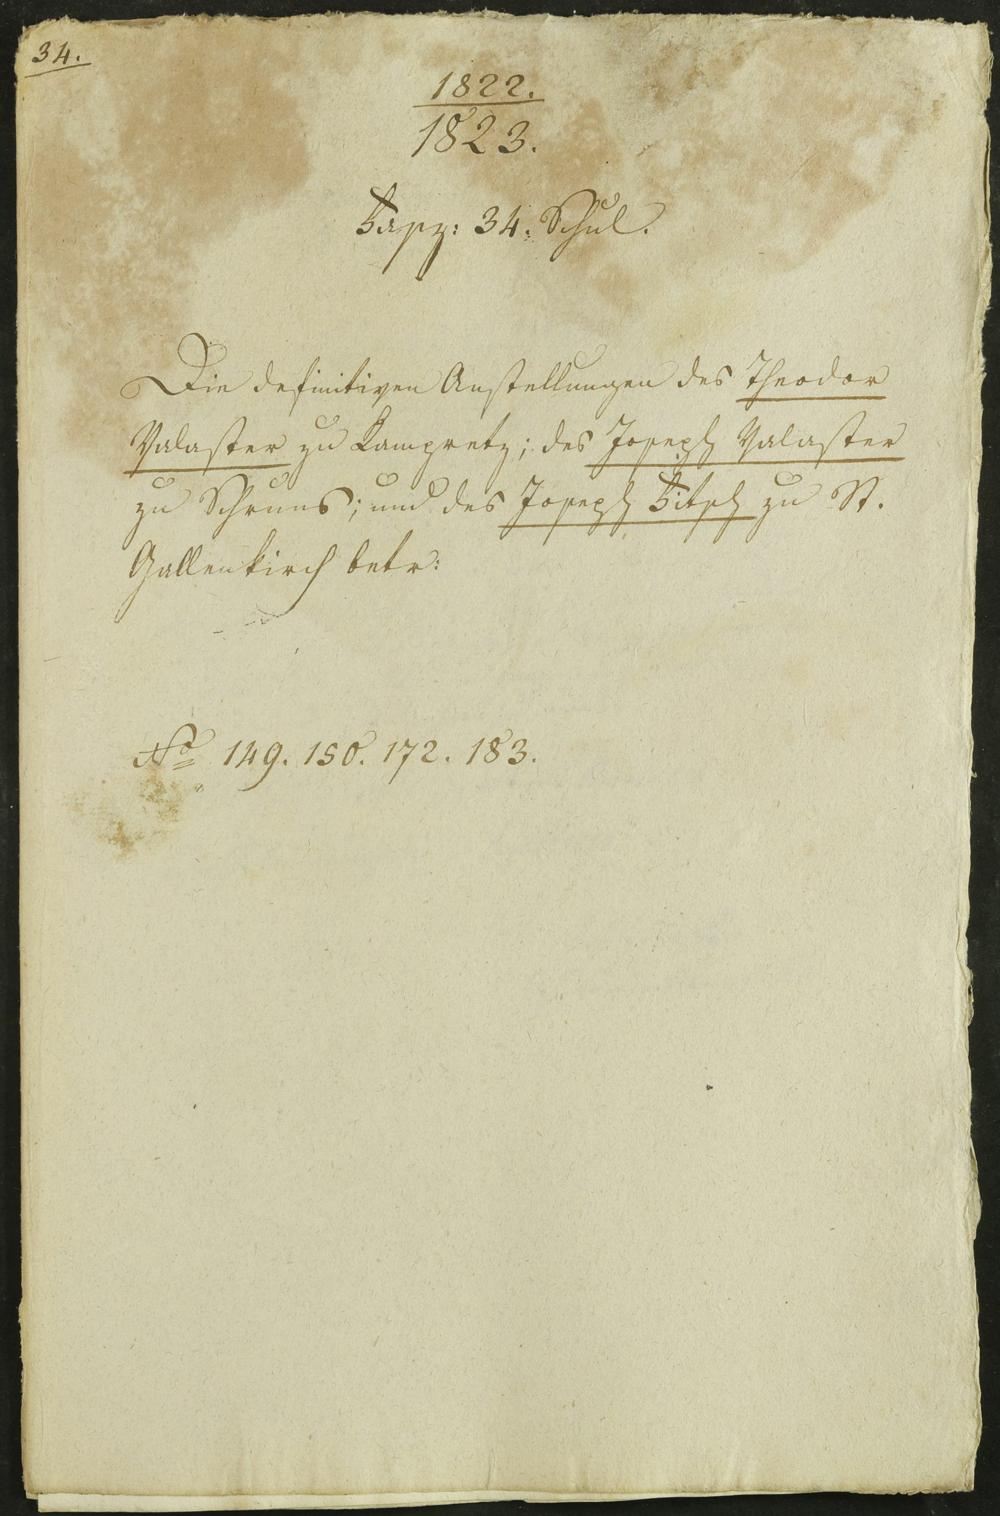 34.
1822.
1823.
Fasz: 34. Schul.
Die definitiven Anstellungen des Theodor
Valaster zu Lampretz; des Joseph Valaster
zu Schruns; und des Joseph Fitsch zu St.
Gallenkirch betr:
No 149. 150. 172. 183.